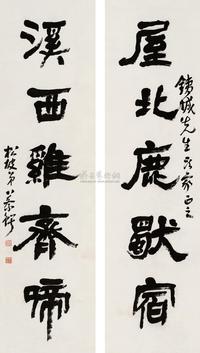 屋北鹿獨宿
銕城先生 家正之
溪西雞齊啼
松坡弟蔡鍔